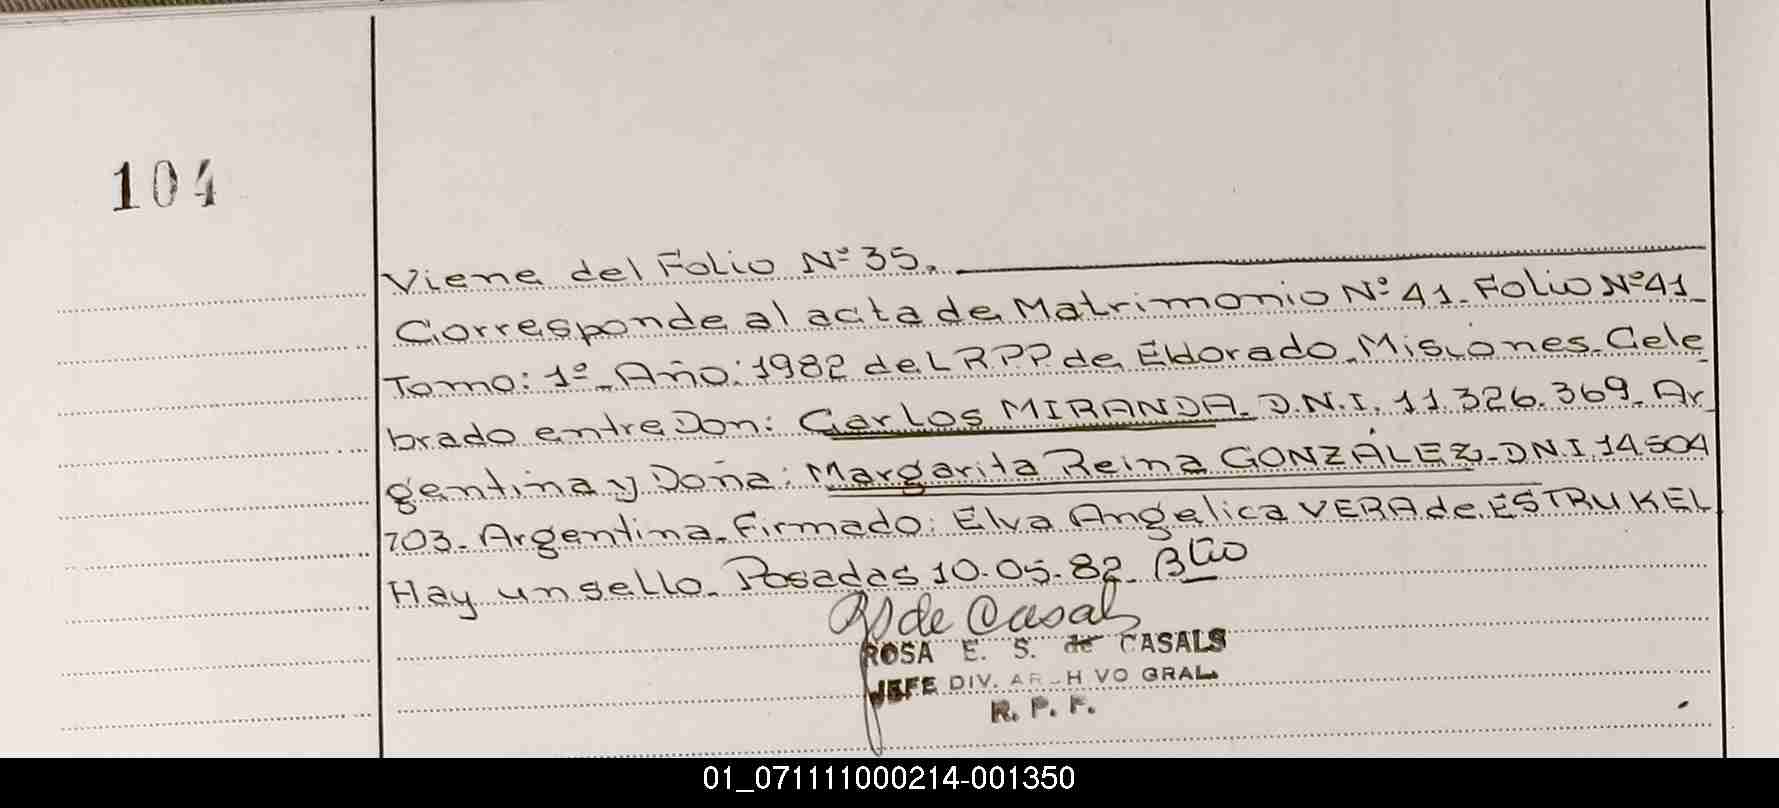 104
Viene del Folio Nº 35.
Corresponde al acta de Matrimonio Nº 41. Folio Nº 41_
Tomo: 1º_ Año: 1982 del R.P.P. de Eldorado_Misiones. Cele
brado entre Don: Carlos MIRANDA_ D.N.I. 11.326.369_ Ar_
gentina y Doña: Margarita Reina GONZÁLEZ_ D.N.I. 14.504
703_ Argentina_ Firmado: Elva Angelica VERA de ESTRUKEL
Hay un sello_ Posadas 10-05-82_
de Casals
ROSA E. S. de CASALS
JEFE DIV. ARCHIVO GRAL.
R. P. F.
01_071111000214-001350